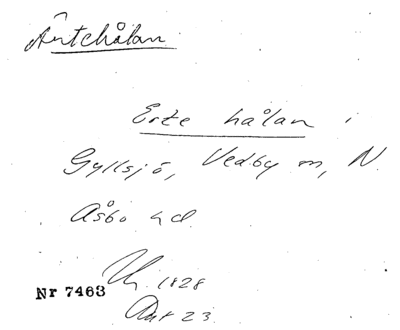 Ärtehålan
Erte hålan i
Gyllsjö, Vedby sn, N.
Åsbo hd.
1828
Nr 7463
Akt 23